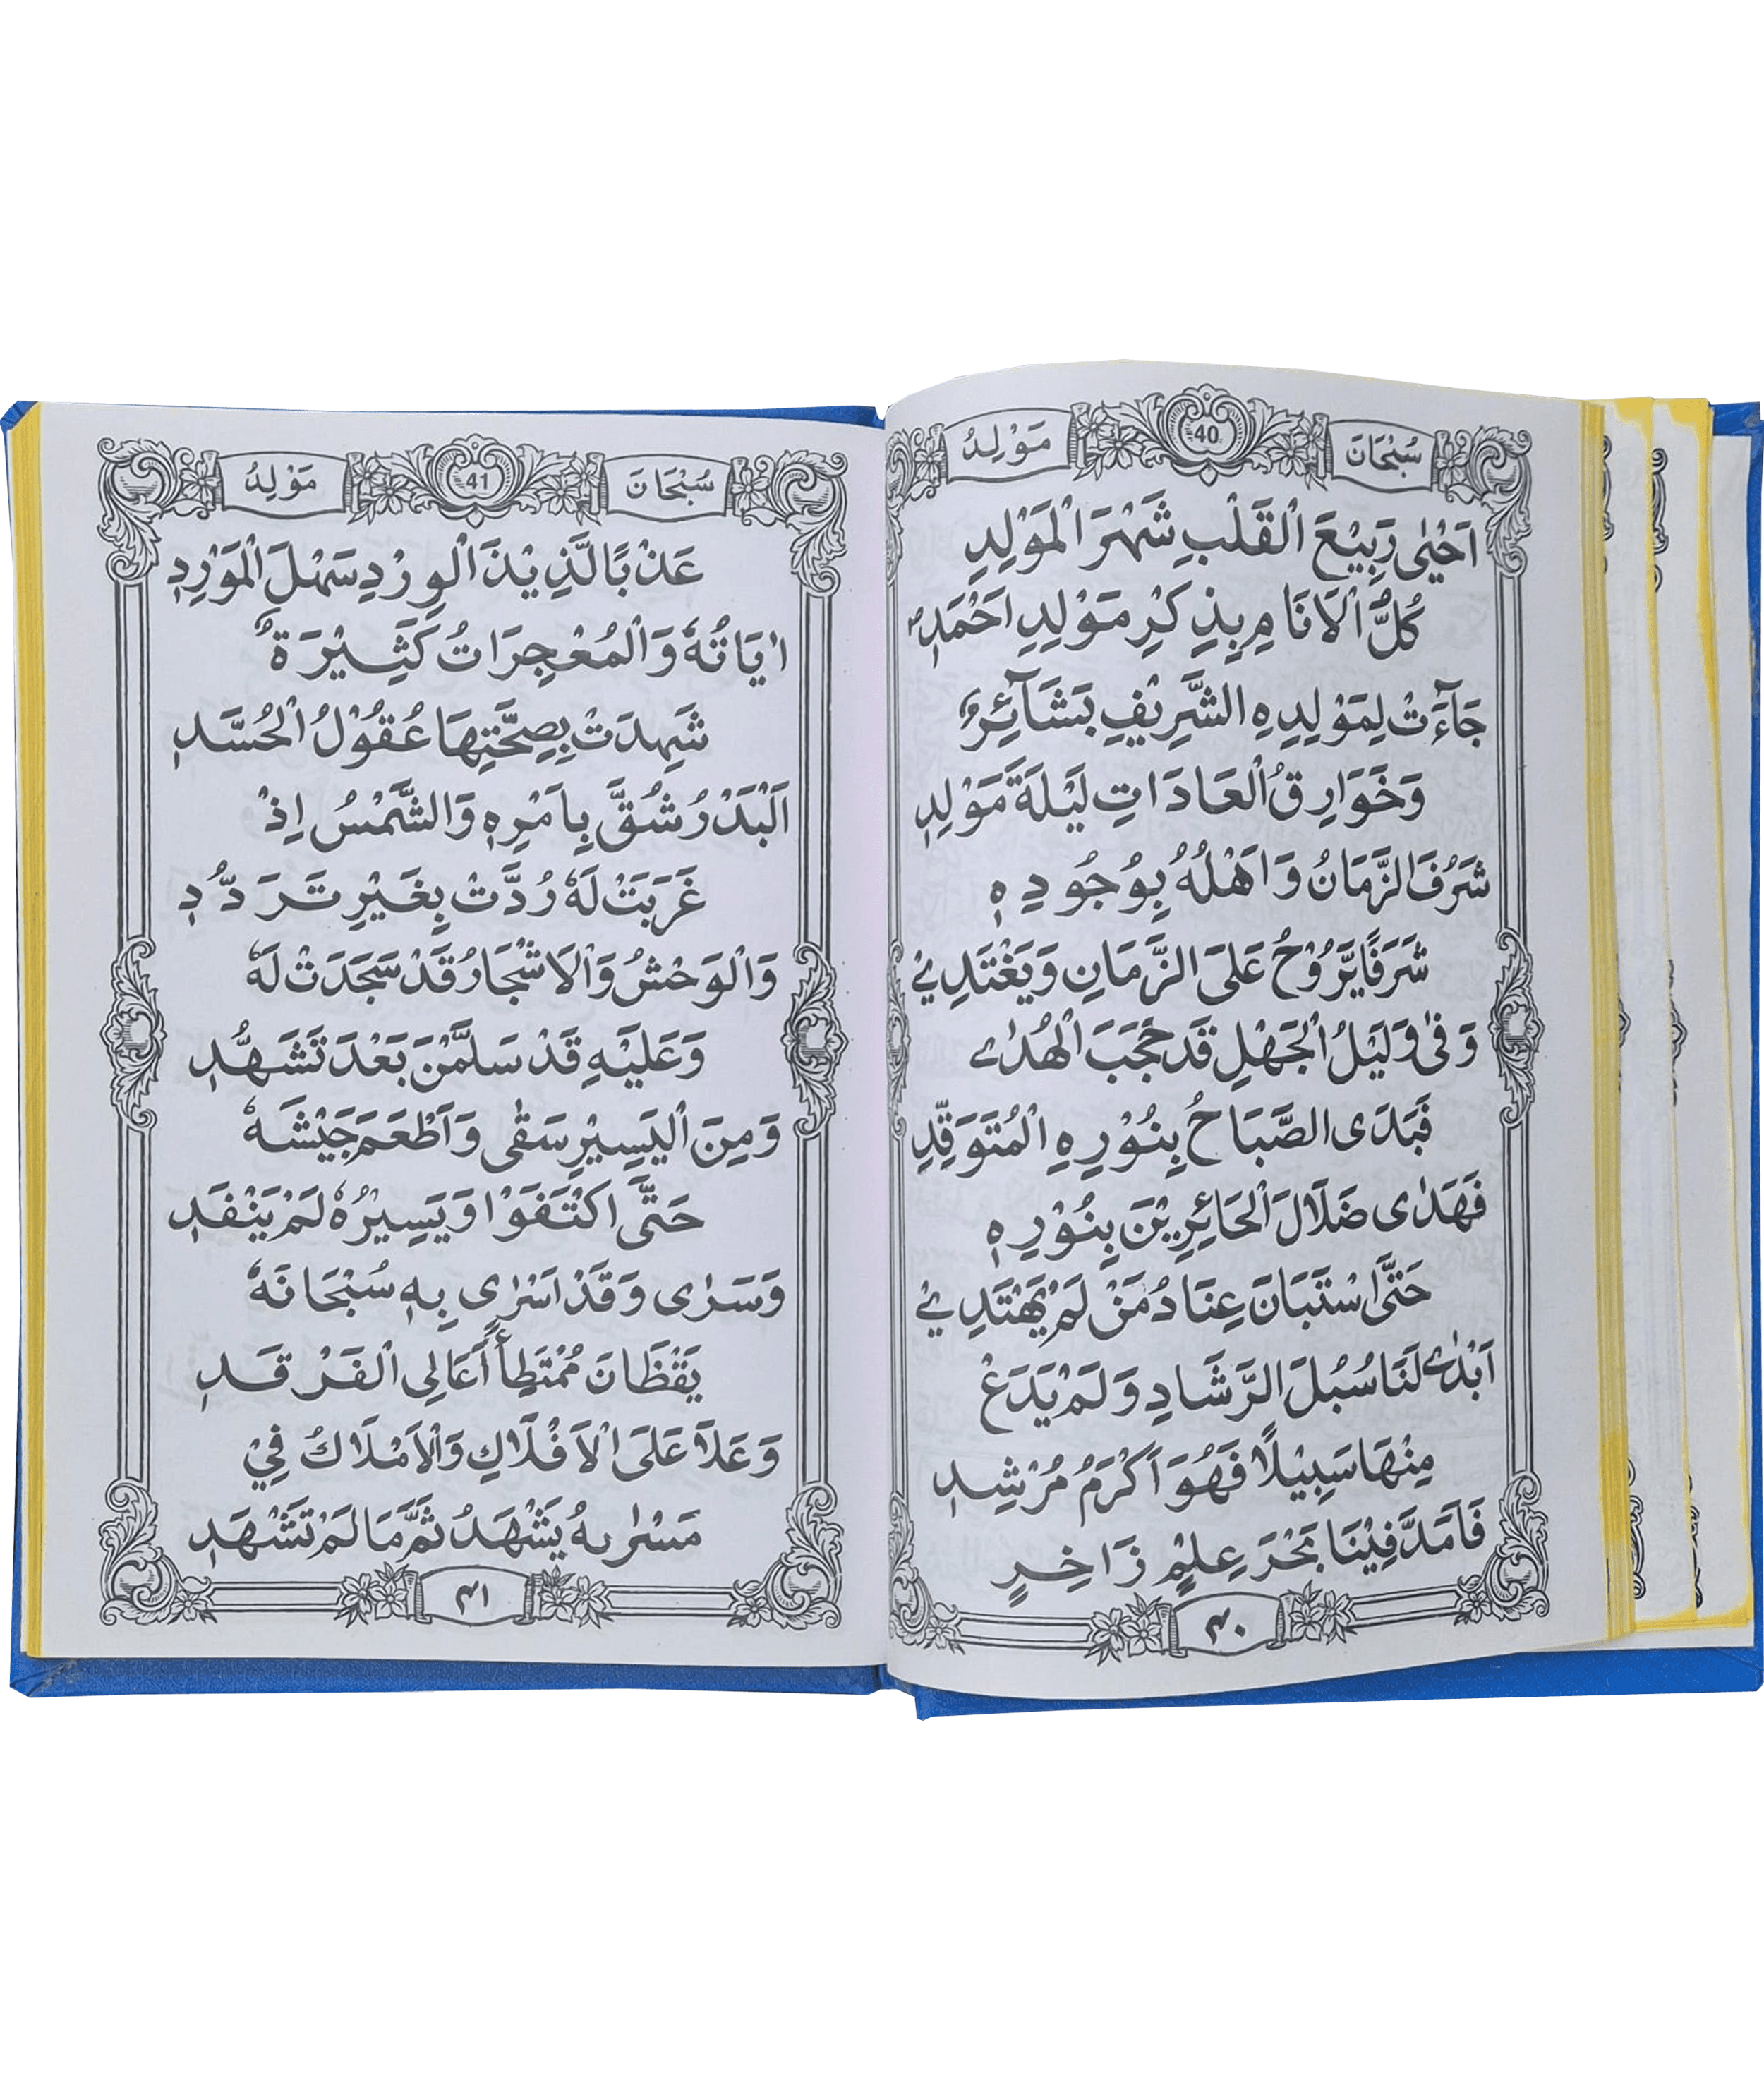 سُبْحَانَ 40 مَوْلِدُ
اَحْيٰى رَبِيْعَ الْقَلْبِ شَهْرَ الْمَوْلِدِ
كُلُّ الْاَنَامِ بِذِكْرِ مَوْلِدِ اَحْمَدِ
جَاۤءَتْ لِمَوْلِدِهِ الشَّرِيْفِ بَشَاۤئِرٌ
وَخَوَارِقُ الْعَادَاتِ لَيْلَةَ مَوْلِدِ
شَرُفَ الزَّمَانُ وَاَهْلُهُ بِوُجُودِهٖ
شَرَفًا يَّرُوْحُ عَلَى الزَّمَانِ وَيَغْتَدِيْ
وَفٰى وَلَيْلُ الْجَهْلِ قَدْ حَجَبَ الْهُدٰى
فَبَدَى الصَّبَاحُ بِنُوْرِهِ الْمُتَوَقِّدِ
فَهَدٰى ضَلَالَ الْحَائِرِيْنَ بِنُوْرِهٖ
حَتَّى اسْتَبَانَ عِنَادُ مَنْ لَمْ يَهْتَدِيْ
اَبْدٰى لَنَا سُبُلَ الرَّشَادِ وَلَمْ يَدَعْ
مِنْهَا سَبِيْلًا فَهُوَ اَكْرَمُ مُرْشِدِ
فَاَمَدَّ فِيْنَا بَحْرَ عِلْمٍ زَاخِرٍ
٤٠
سُبْحَانَ 41 مَوْلِدُ
عَذْبًا لَّذِيْذَ الْوِرْدِ سَهْلَ الْمَوْرِدِ
اٰيَاتُهٗ وَالْمُعْجِزَاتُ كَثِيْرَةٌ
شَهِدَتْ بِصِحَّتِهَا عُقُوْلُ الْحُسَّدِ
اَلْبَدْرُ شُقَّ بِاَمْرِهٖ وَالشَّمْسُ اِذْ
غَرَبَتْ لَهٗ رُدَّتْ بِغَيْرِ تَرَدُّدِ
وَالْوَحْشُ وَالْاَشْجَارُ قَدْ سَجَدَتْ لَهٗ
وَعَلَيْهِ قَدْ سَلَّمْنَ بَعْدَ تَشَهُّدِ
وَمِنَ الْيَسِيْرِ سَقٰى وَاَطْعَمَ جَيْشَهٗ
حَتَّى اكْتَفَوْا وَيَسِيْرُهٗ لَمْ يَنْفَدِ
وَسَرٰى وَقَدْ اَسْرٰى بِهٖ سُبْحَانَهٗ
يَقْظَانَ مُمْتَطِأً اَعَالِى الْفَرْقَدِ
وَعَلَا عَلَى الْاَفْلَاكِ وَالْاَمْلَاكُ فِيْ
مَسْرٰىهُ يَشْهَدُ ثَمَّ مَا لَمْ تَشْهَدِ
٤١